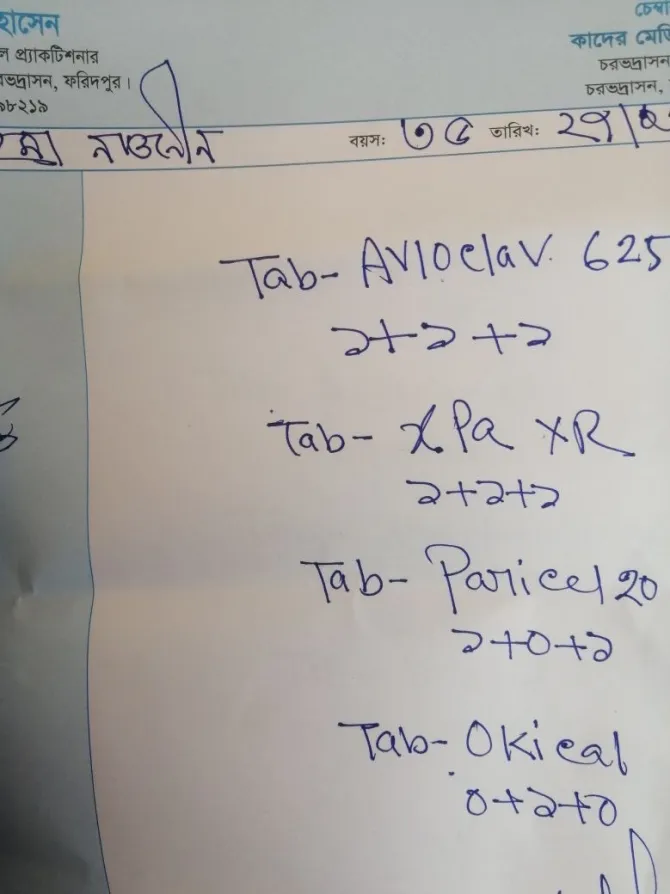 হোসেন
ল প্র্যাকটিশনার
রভদ্রাসন, ফরিদপুর।
৯৮২১৯
চেম্বা
কাদের মেডি
চরভদ্রাসন
চরভদ্রাসন,
নাওরীন বয়স: ৩৫ তারিখ: ২৭/২
Tab- AVloclav. 625
১+১+১
Tab- XPa XR
১+১+১
Tab- Paricel 20
১+০+১
Tab- OKical
০+১+০